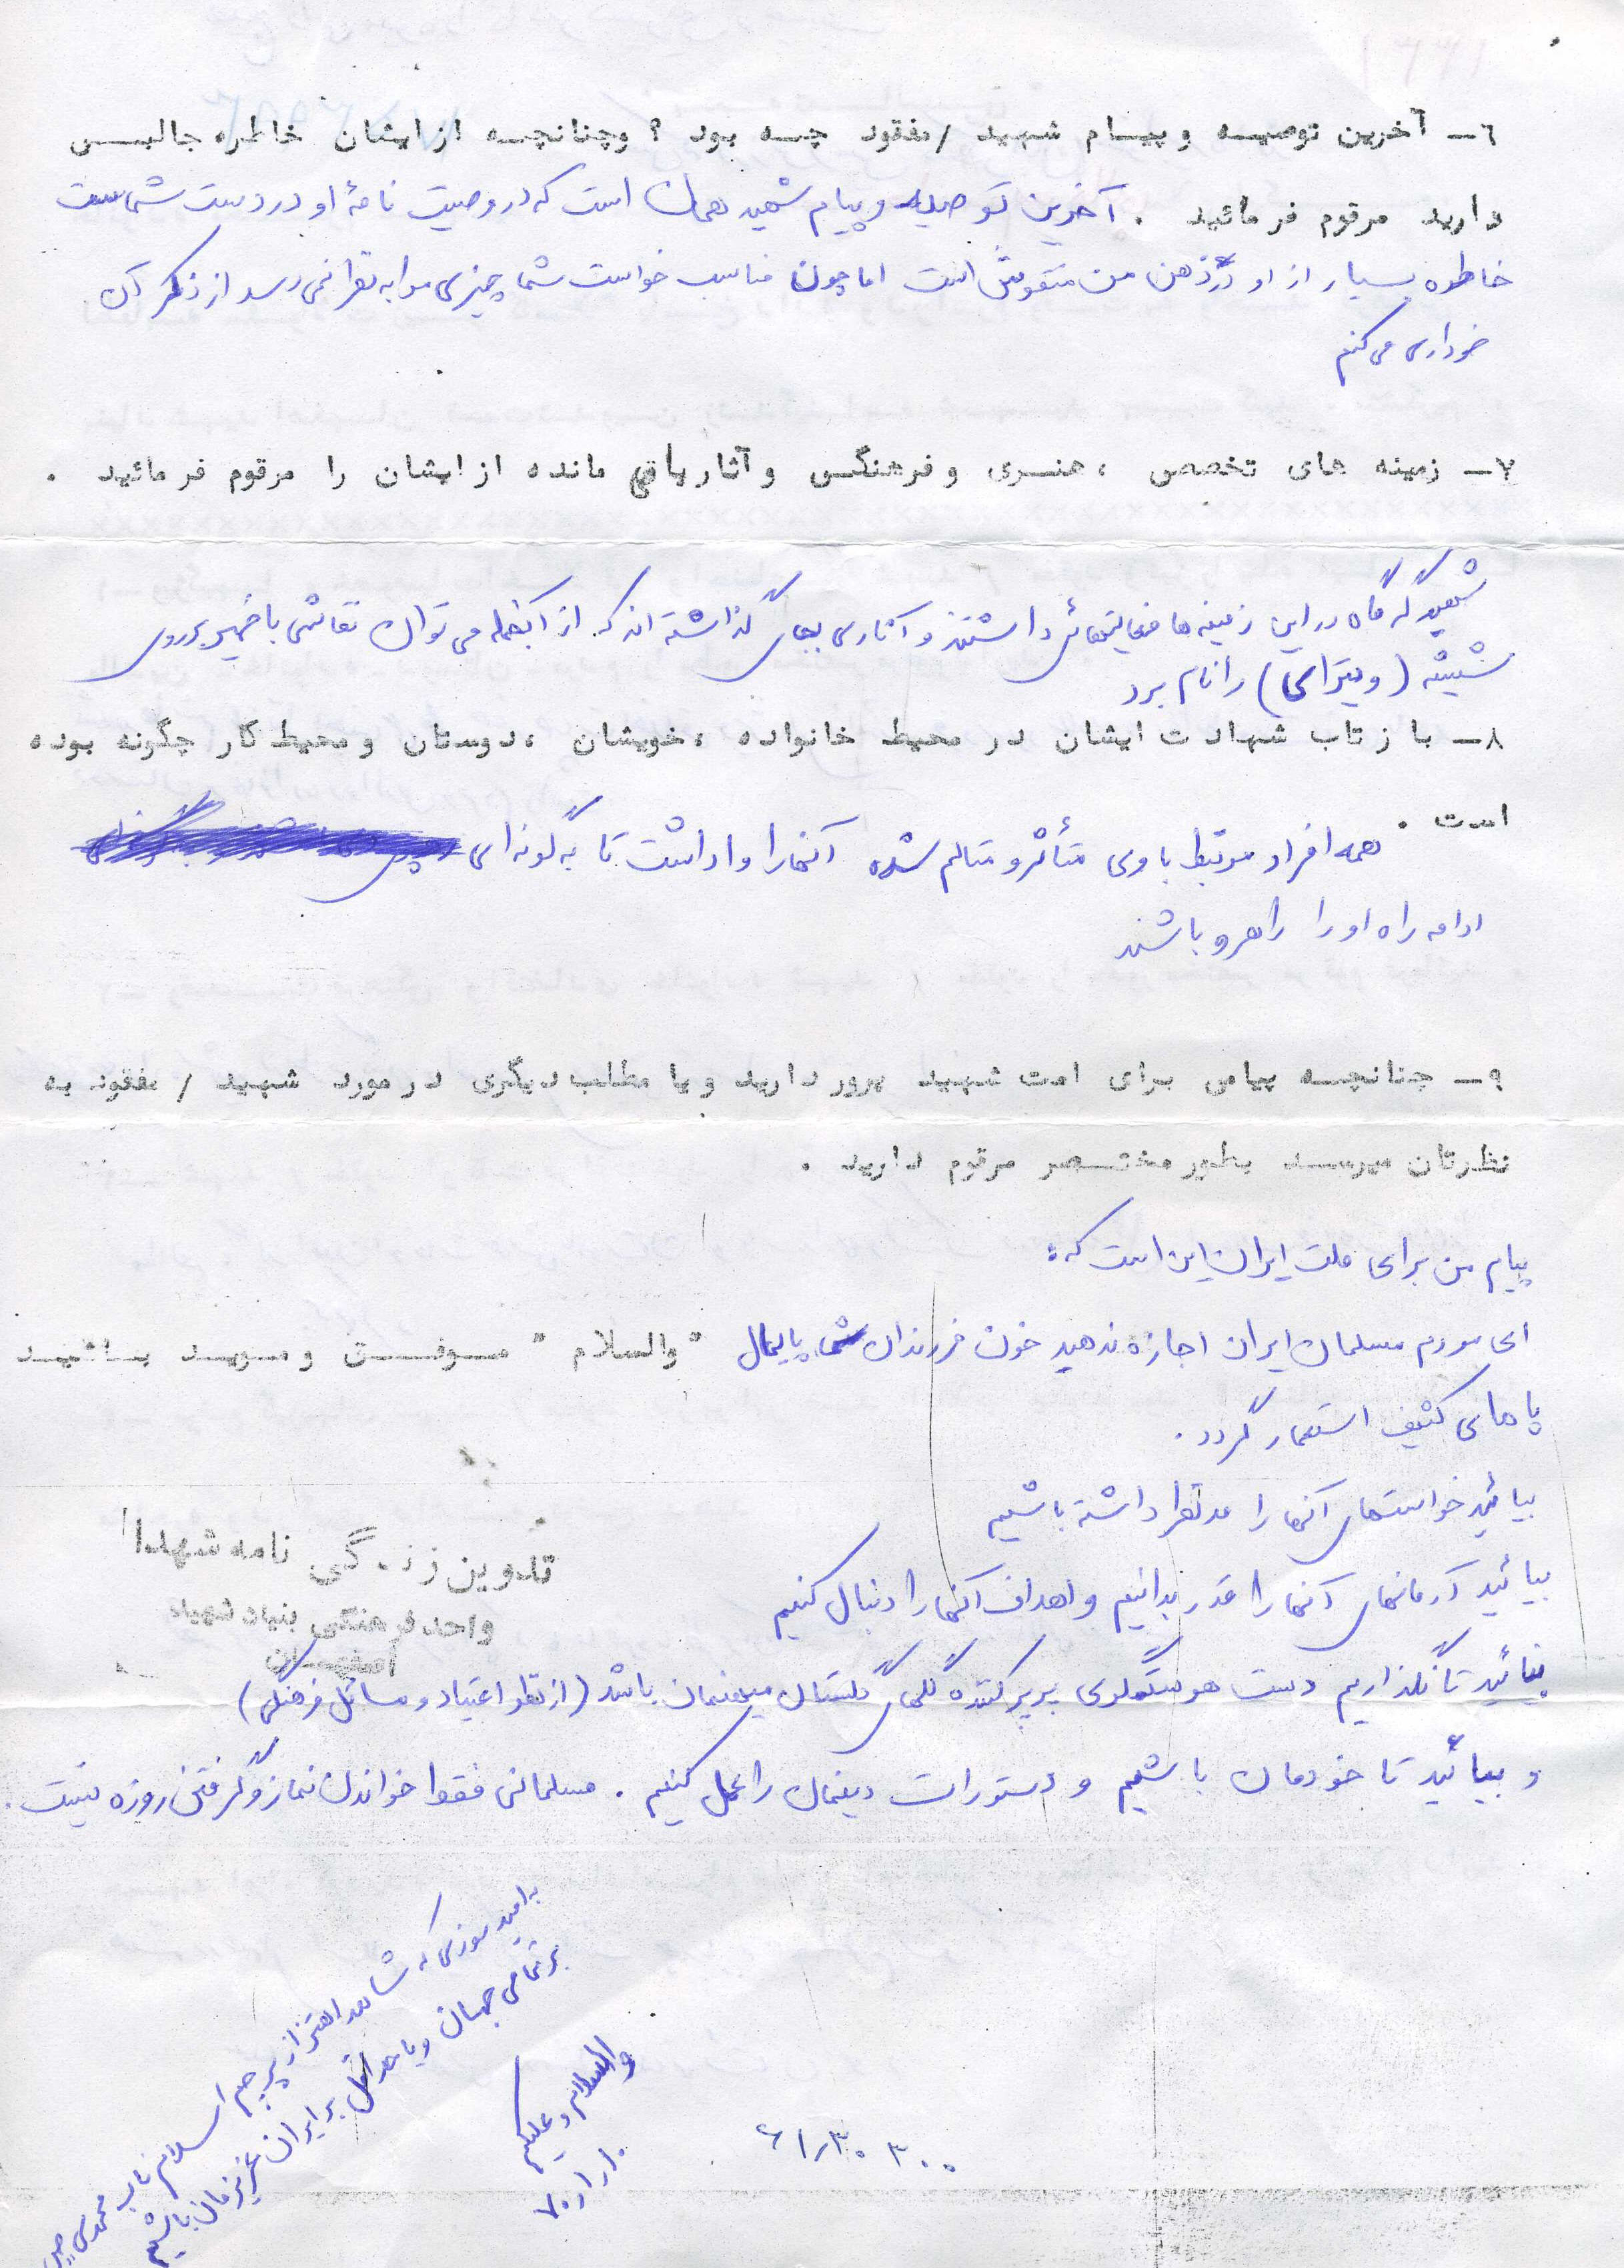 ٦- آخرین توصیه و پیام شهید / مفقود چه بود ؟ وچنانچه از ایشان خاطره جالبی
دارید مرقوم فرمائید . آخرین توصیه و پیام شهید همان است که در وصیت نامهٔ او در دست شماست
خاطره بسیار از او در ذهن من منقوش است اما چون مناسب خواست شما چیزی مرا به نظر نمی رسد از ذکر آن
خودداری می کنم
۷- زمینه های تخصصی ، هنری و فرهنگی و آثار باقی مانده از ایشان را مرقوم فرمائید .
شهید گه گاه در این زمینه ها فعالیتهائی داشتند و آثاری بجای گذاشته اند که از آنجمله می توان نقاشی با خمیر بر روی
شیشه (ویترای) را نام برد
۸- بازتاب شهادت ایشان در محیط خانواده ، خویشان ، دوستان و محیط کار چگونه بوده
است . همه افراد مرتبط با وی متأثر و متالم شده آنها را واداشت تا به گونه ای
ادامه راه او را راهرو باشند
۹- چنانچه پیامی برای امت شهید پرور دارید و یا مطلب دیگری در مورد شهید / مفقود به
نظرتان میرسد بطور مختصر مرقوم دارید .
پیام من برای ملت ایران این است که :
ای مردم مسلمان ایران اجازه ندهید خون فرزندان شما پایمال
" والسلام " موفق و موید باشید
پاهای کثیف استعمار گردد .
بیائید خواستهای آنها را مد نظر داشته باشیم
بیائید آرمانهای آنها را قدر بدانیم و اهداف آنها را دنبال کنیم
تدوین زندگی نامه شهدا
واحد فرهنگی بنیاد شهید
اصفهان
بیائید تا نگذاریم دست پرپر کننده گلهای گلستان میهنمان باشد (از نظر اعتیاد و مسائل فرهنگی)
و بیائید تا خودمان باشیم و دستورات دینمان را عمل کنیم . مسلمانی فقط خواندن نماز و گرفتن روزه نیست .
به امید روزی که شاهد اهتزاز پرچم اسلام ناب محمدی
بر تمامی جهان و یا حداقل بر ایران عزیزمان باشیم
والسلام و علیکم
۷۰/۱/۱۰